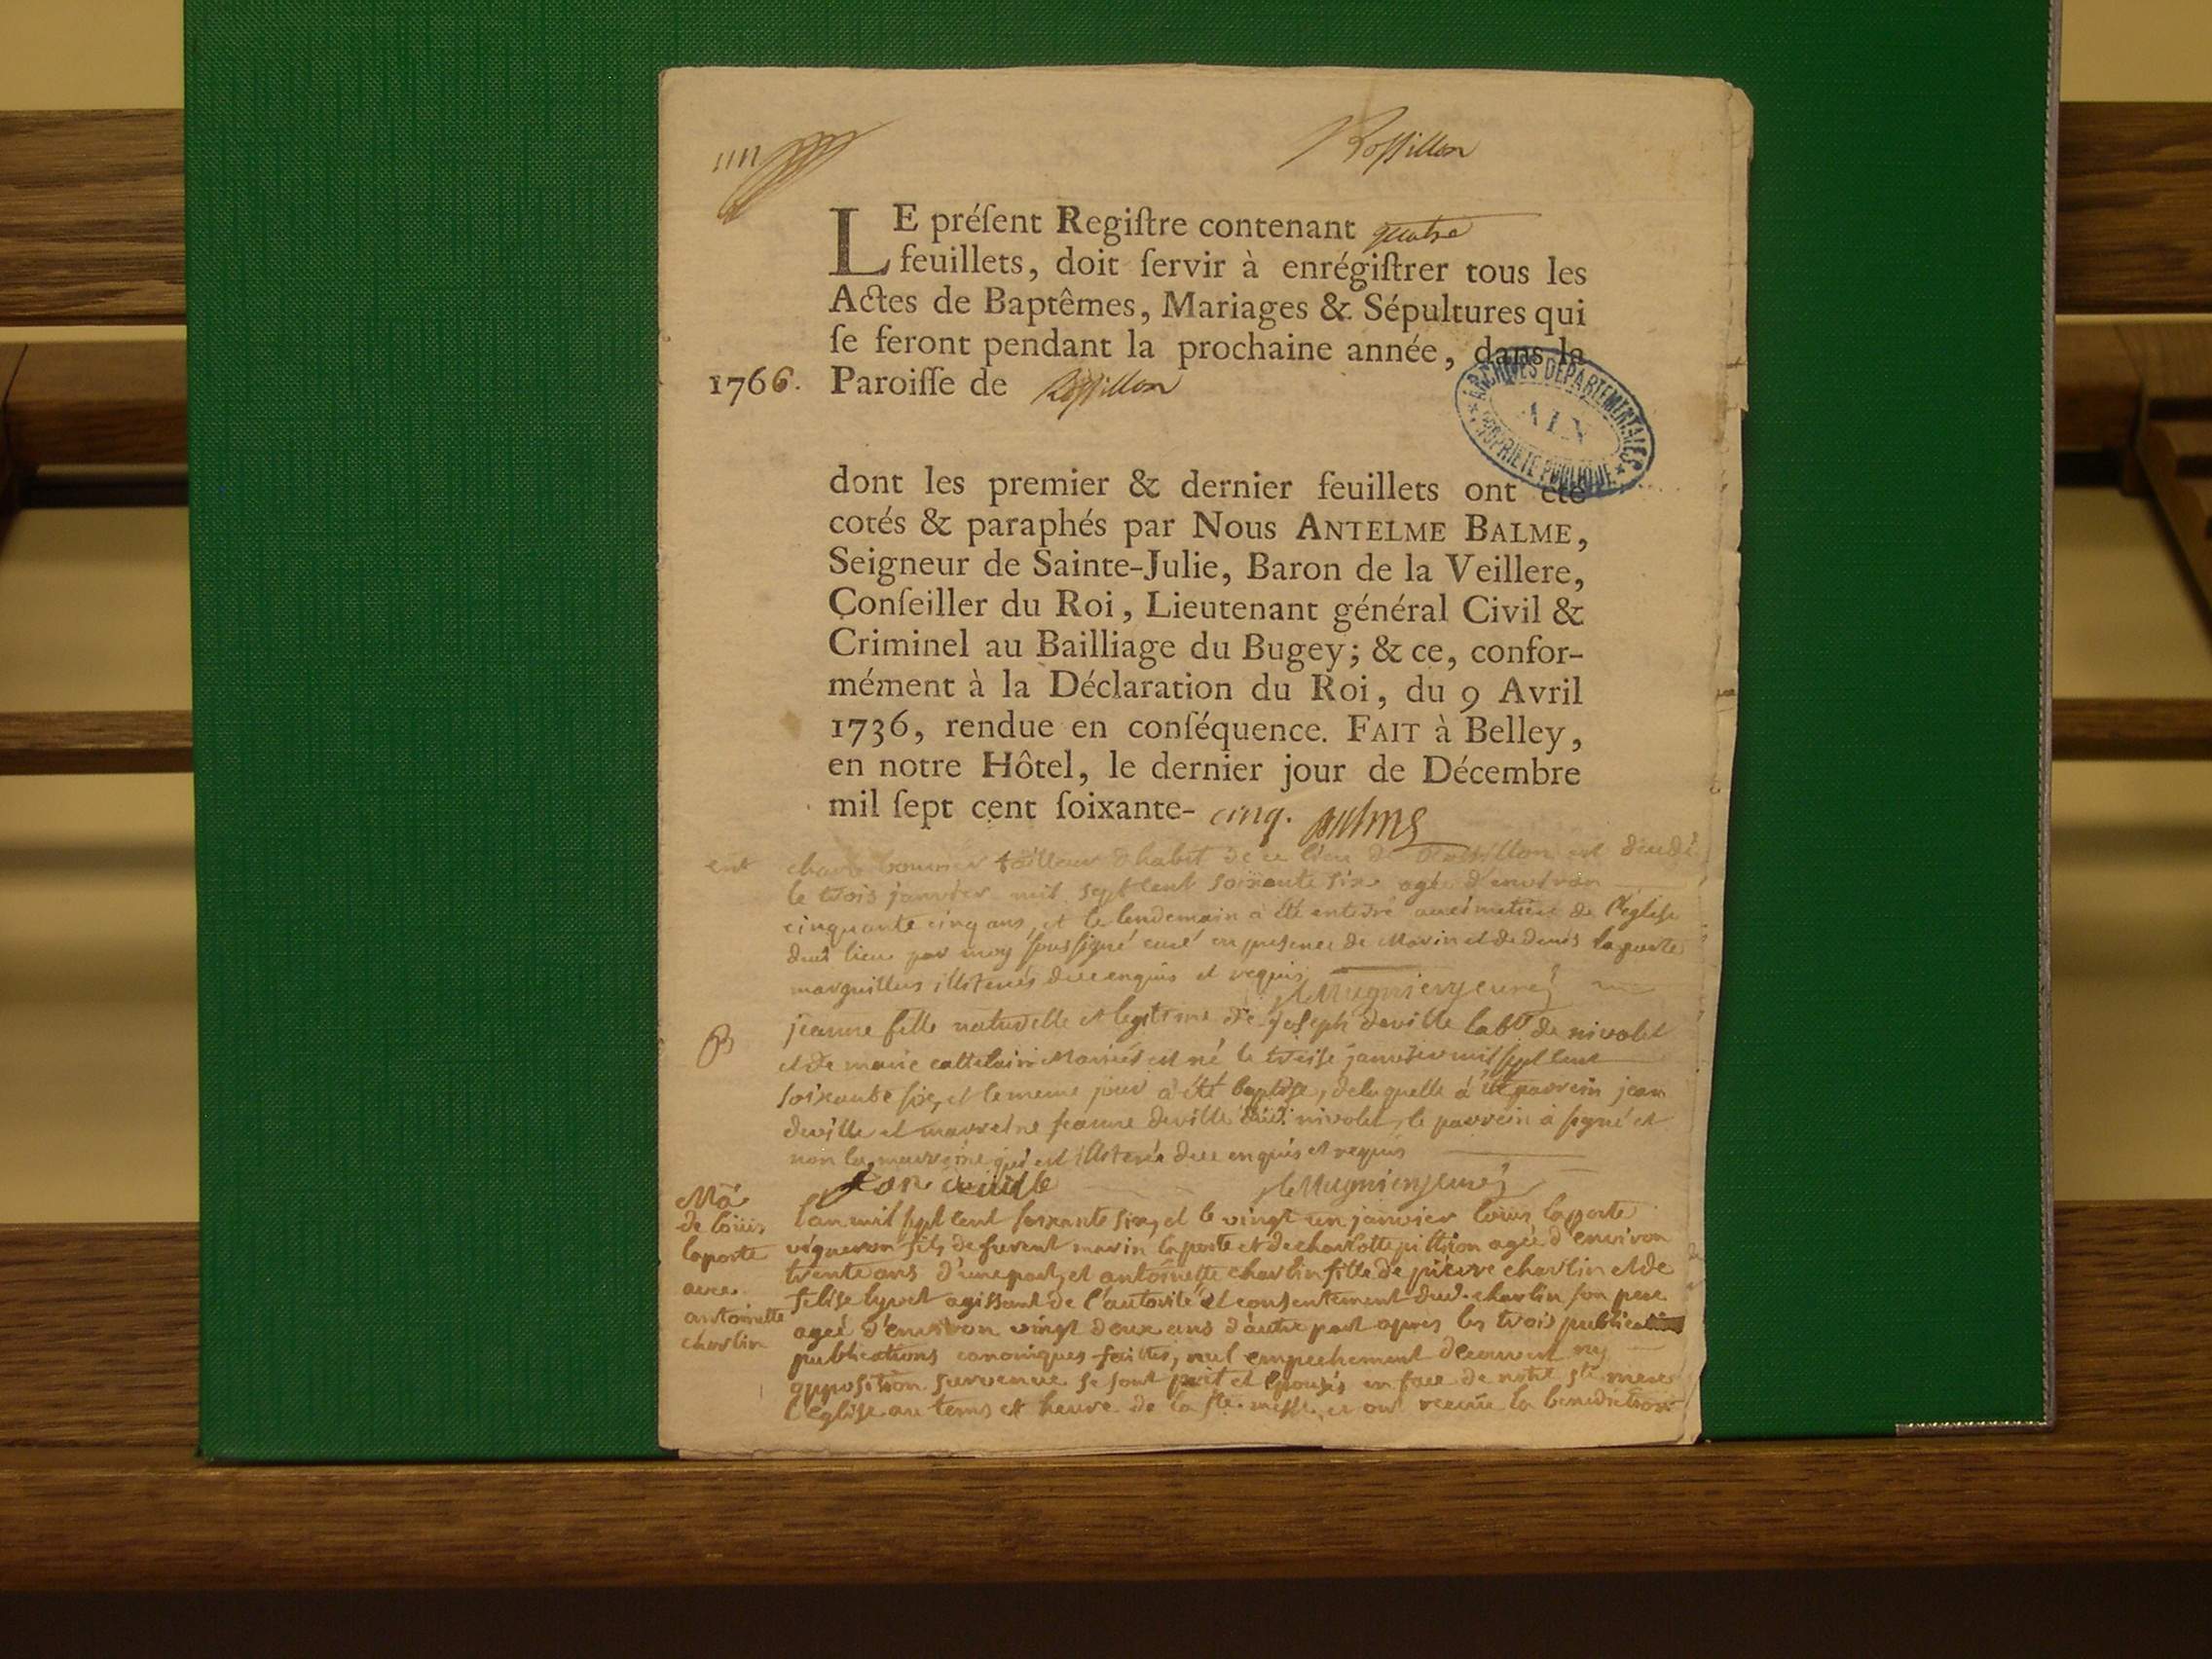 Rossillon
LE préſent Regiſtre contenant quatre
feuillets, doit ſervir à enrégiſtrer tous les
Actes de Baptêmes, Mariages & Sépultures qui
ſe feront pendant la prochaine année, dans la
1766. Paroiſſe de Rossillon
ARCHIVES DEPARTEMENTALES
AIN
PROPRIETE PUBLIQUE
dont les premier & dernier feuillets ont été
cotés & paraphés par Nous ANTELME BALME,
Seigneur de Sainte-Julie, Baron de la Veillere,
Conſeiller du Roi, Lieutenant général Civil &
Criminel au Bailliage du Bugey; & ce, confor-
mément à la Déclaration du Roi, du 9 Avril
1736, rendue en conſéquence. FAIT à Belley,
en notre Hôtel, le dernier jour de Décembre
mil ſept cent ſoixante- cinq. Balme
ent tailleur d'habit de ce lieu de Rossillon est
le trois janvier mil sept cent soixante six agé d'environ
cinquante cinq ans, et le lendemain a été enterré au cimetiere de l'eglise
dud lieu par moy soussigné curé en presence de Marin et de denis laporte
marguilliers illiterés de ce enquis et requis
B jeanne fille naturelle et legitime de joseph deville lab.r de nivolet
et de marie mariés est né le treise janvier mil sept cent
soixante six, et le meme jour a été baptisé, de laquelle à été parrein jean
deville et marreine jeanne deville dud. nivolet, le parrein à signé et
non la marreine qui est illiterée de ce enquis et requis
Ma l'an mil sept cent soixante six, et le vingt un janvier louis laporte
de loüis vigneron fils de furent marin laporte et de charlotte agé d'environ
laporte trente ans d'une part, et antoinette charlin fille de pierre charlin et de
avec felise agissant de l'autorité et consentement dud. charlin son pere
antoinette agée d'environ vingt deux ans d'autre part apres les trois
charlin publications canoniques faittes, nul empechement decouvert ny
opposition survenue se sont et epousés en face de notre s.te mere
l'eglise au tems et heure de la s.te messe, et ont reçüe la benediction